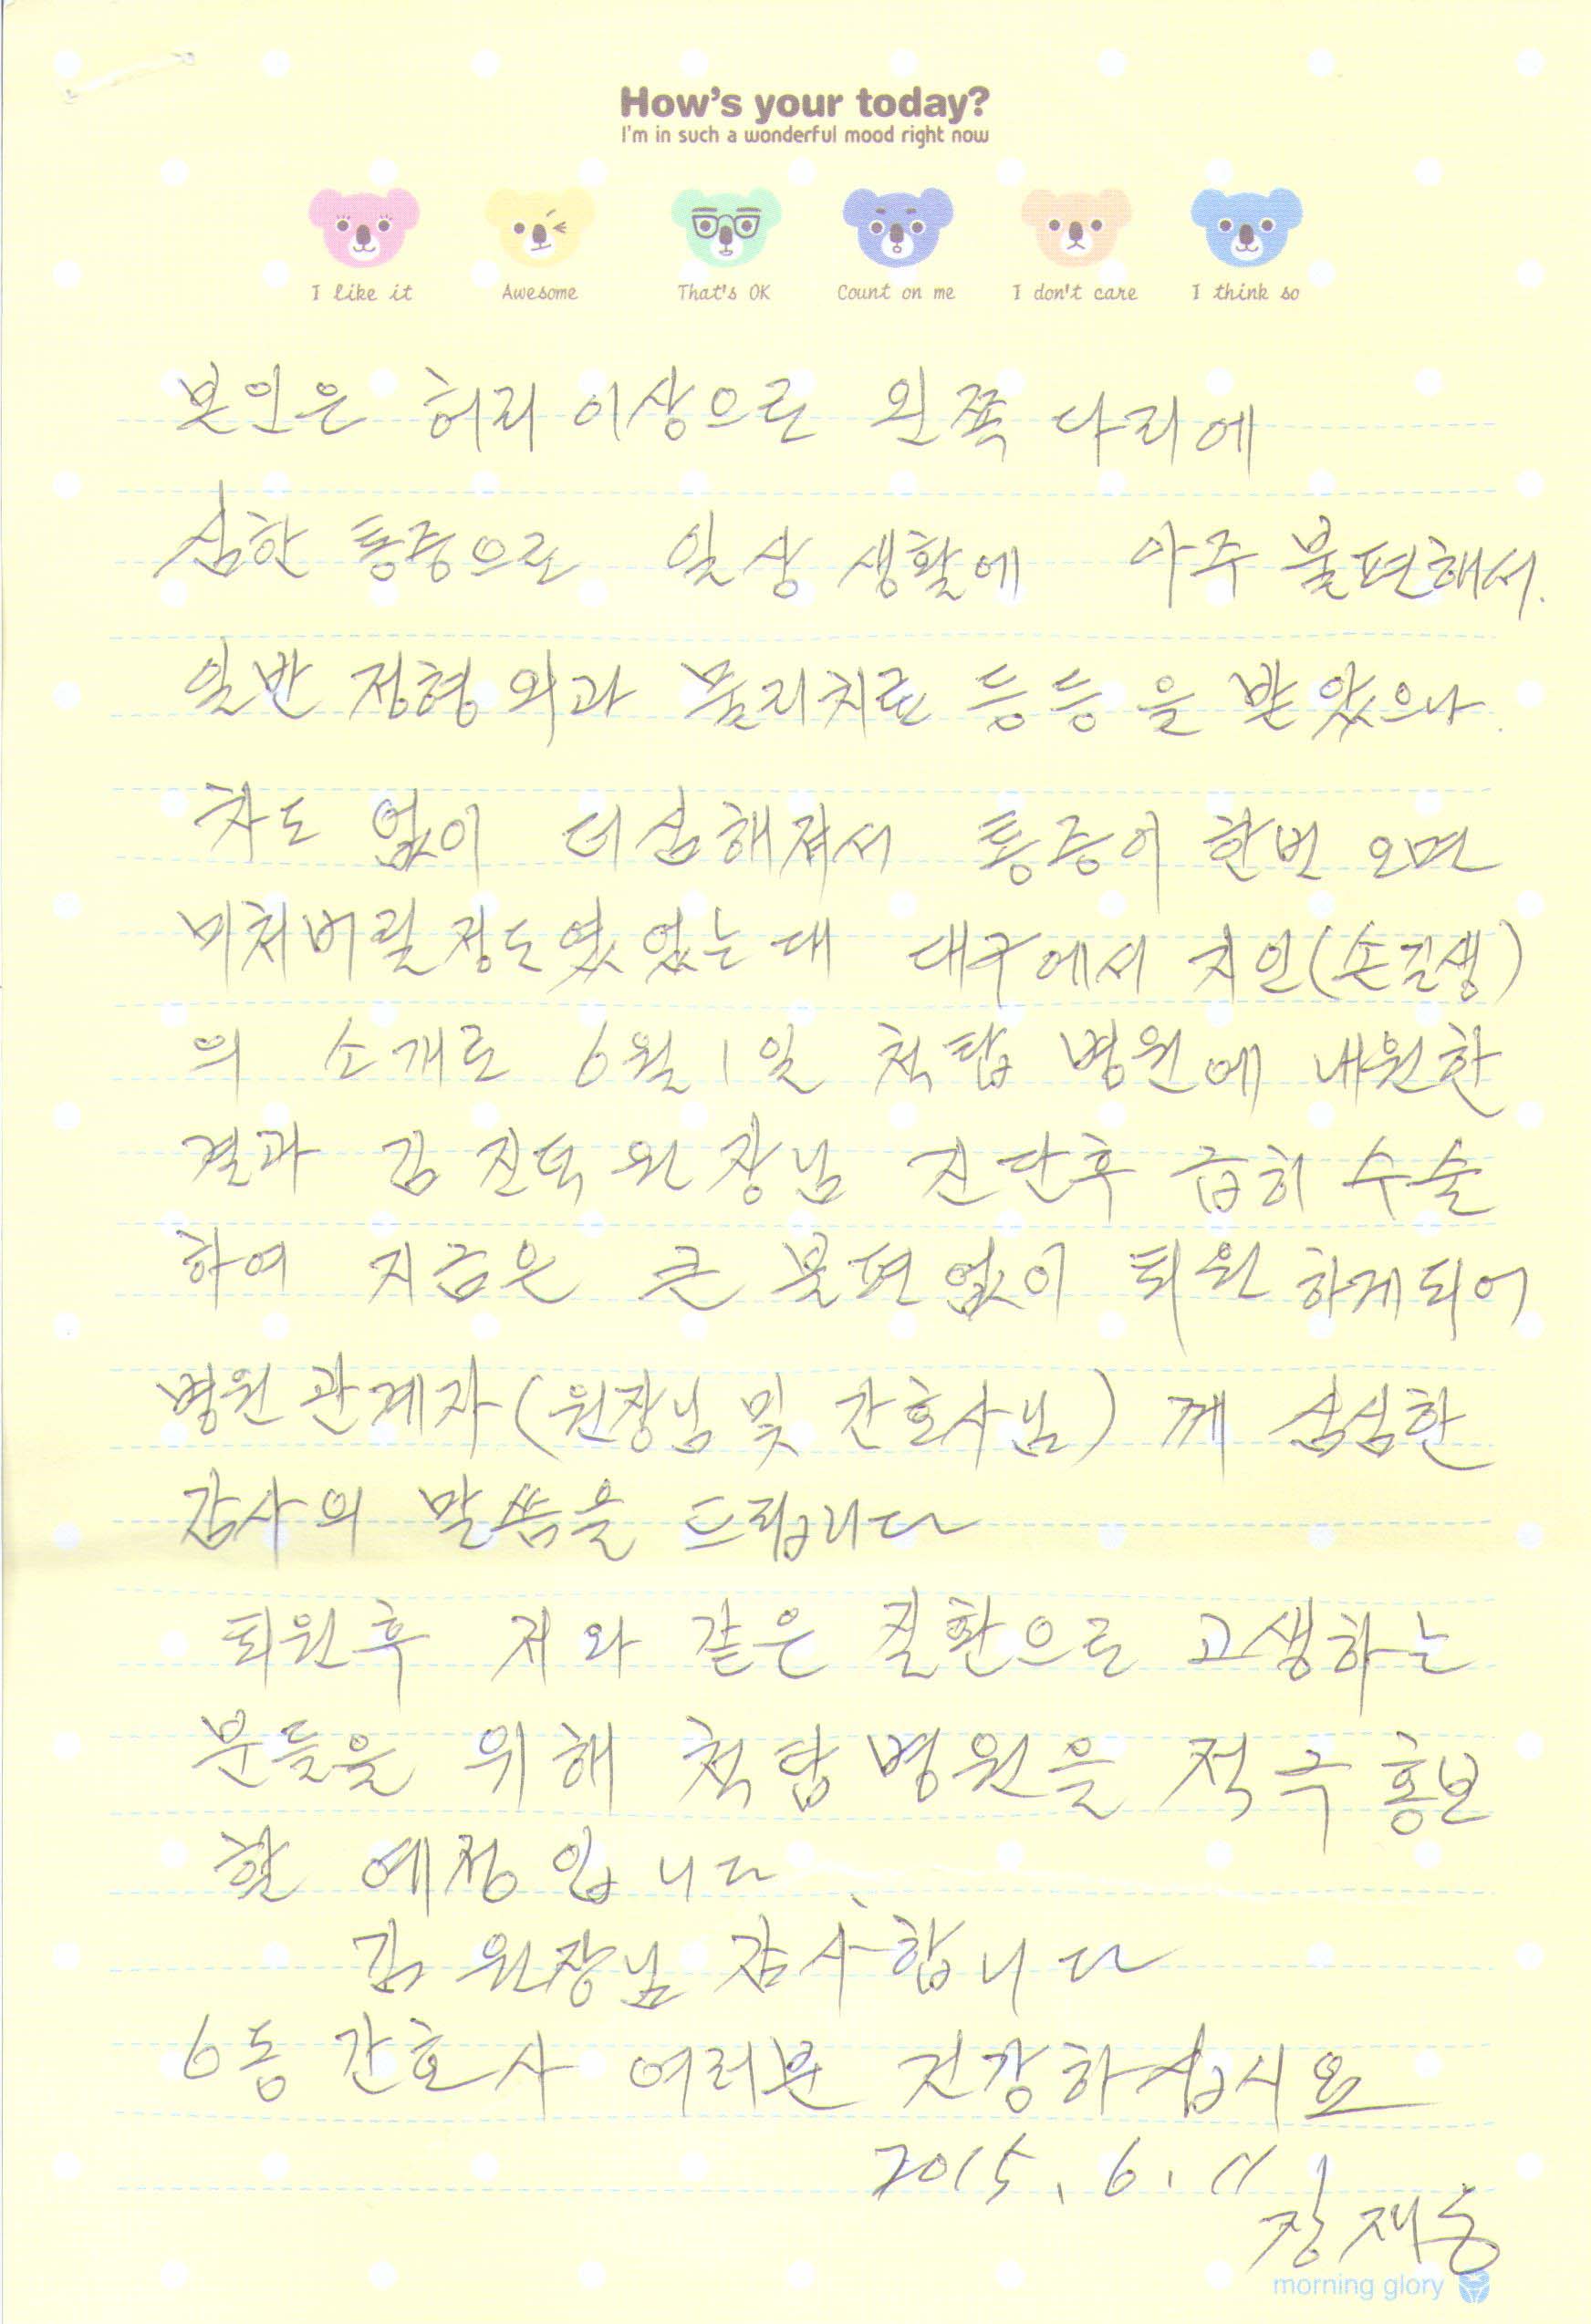 How's your today?
I'm in such a wonderful mood right now
I like it Awesome That's OK Count on me I don't care I think so
본인은 허리 이상으로 왼쪽 다리에
심한 통증으로 일상 생활에 아주 불편해서.
일반 정형외과 물리치료 등등을 받았으나.
차도 없이 더심해져서 통증이 한번 오면
미처버릴정도였었는대 대구에서 지인(손길생)
의 소개로 6월 1일 척탑 병원에 내원한
결과 김진덕원장님 진단후 급히 수술
하여 지금은 큰 불편없이 퇴원하게되어
병원관계자(원장님및 간호사님) 께 심심한
감사의 말씀을 드립니다
퇴원후 저와 같은 질환으로 고생하는
분들을 위해 척탑병원을 적극홍보
할 예정입니다.
김 원장님 감사합니다
6동 간호사 여러분 건강하십시요
2015. 6. 11
장재동
morning glory